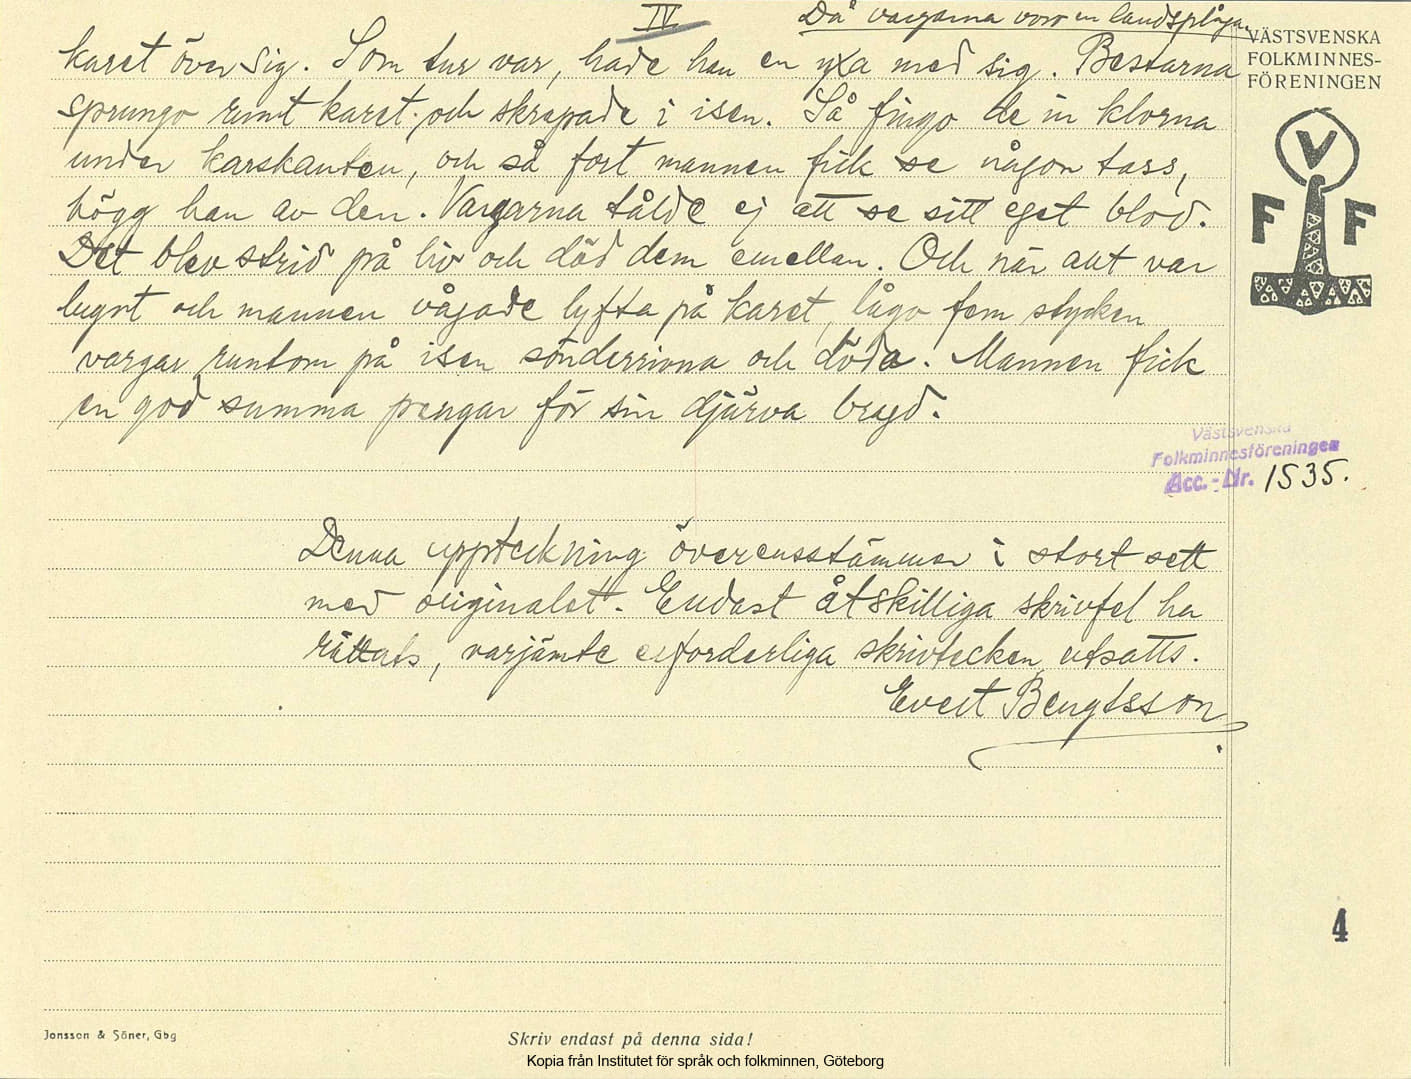 IV
Då vargarna voro en landsplåga.
karet över sig. Som tur var, hade han en yxa med sig. Bestarna
sprungo runt karet och skrapade i isen. Så fingo de in klorna
under karskanten, och så fort mannen fick se någon tass,
högg han av den. Vargarna tålde ej att se sitt eget blod.
Det blev strid på liv och död dem emellan. Och när allt var
lugnt och mannen vågade lyfta på karet, lågo fem stycken
vargar runtom på isen sönderrivna och döda. Mannen fick
en god summa pengar för sin djärva bragd.
Denna uppteckning överensstämmer i stort sett
med originalet. Endast åtskilliga skrivfel ha
rättats, varjämte erforderliga skrivtecken utsatts.
Evert Bengtsson
VÄSTSVENSKA
FOLKMINNES-
FÖRENINGEN
V
F F
Västsvenska
Folkminnesföreningen
Acc.-Nr. 1535.
4
Jonsson & Söner, Gbg
Skriv endast på denna sida!
Kopia från Institutet för språk och folkminnen, Göteborg